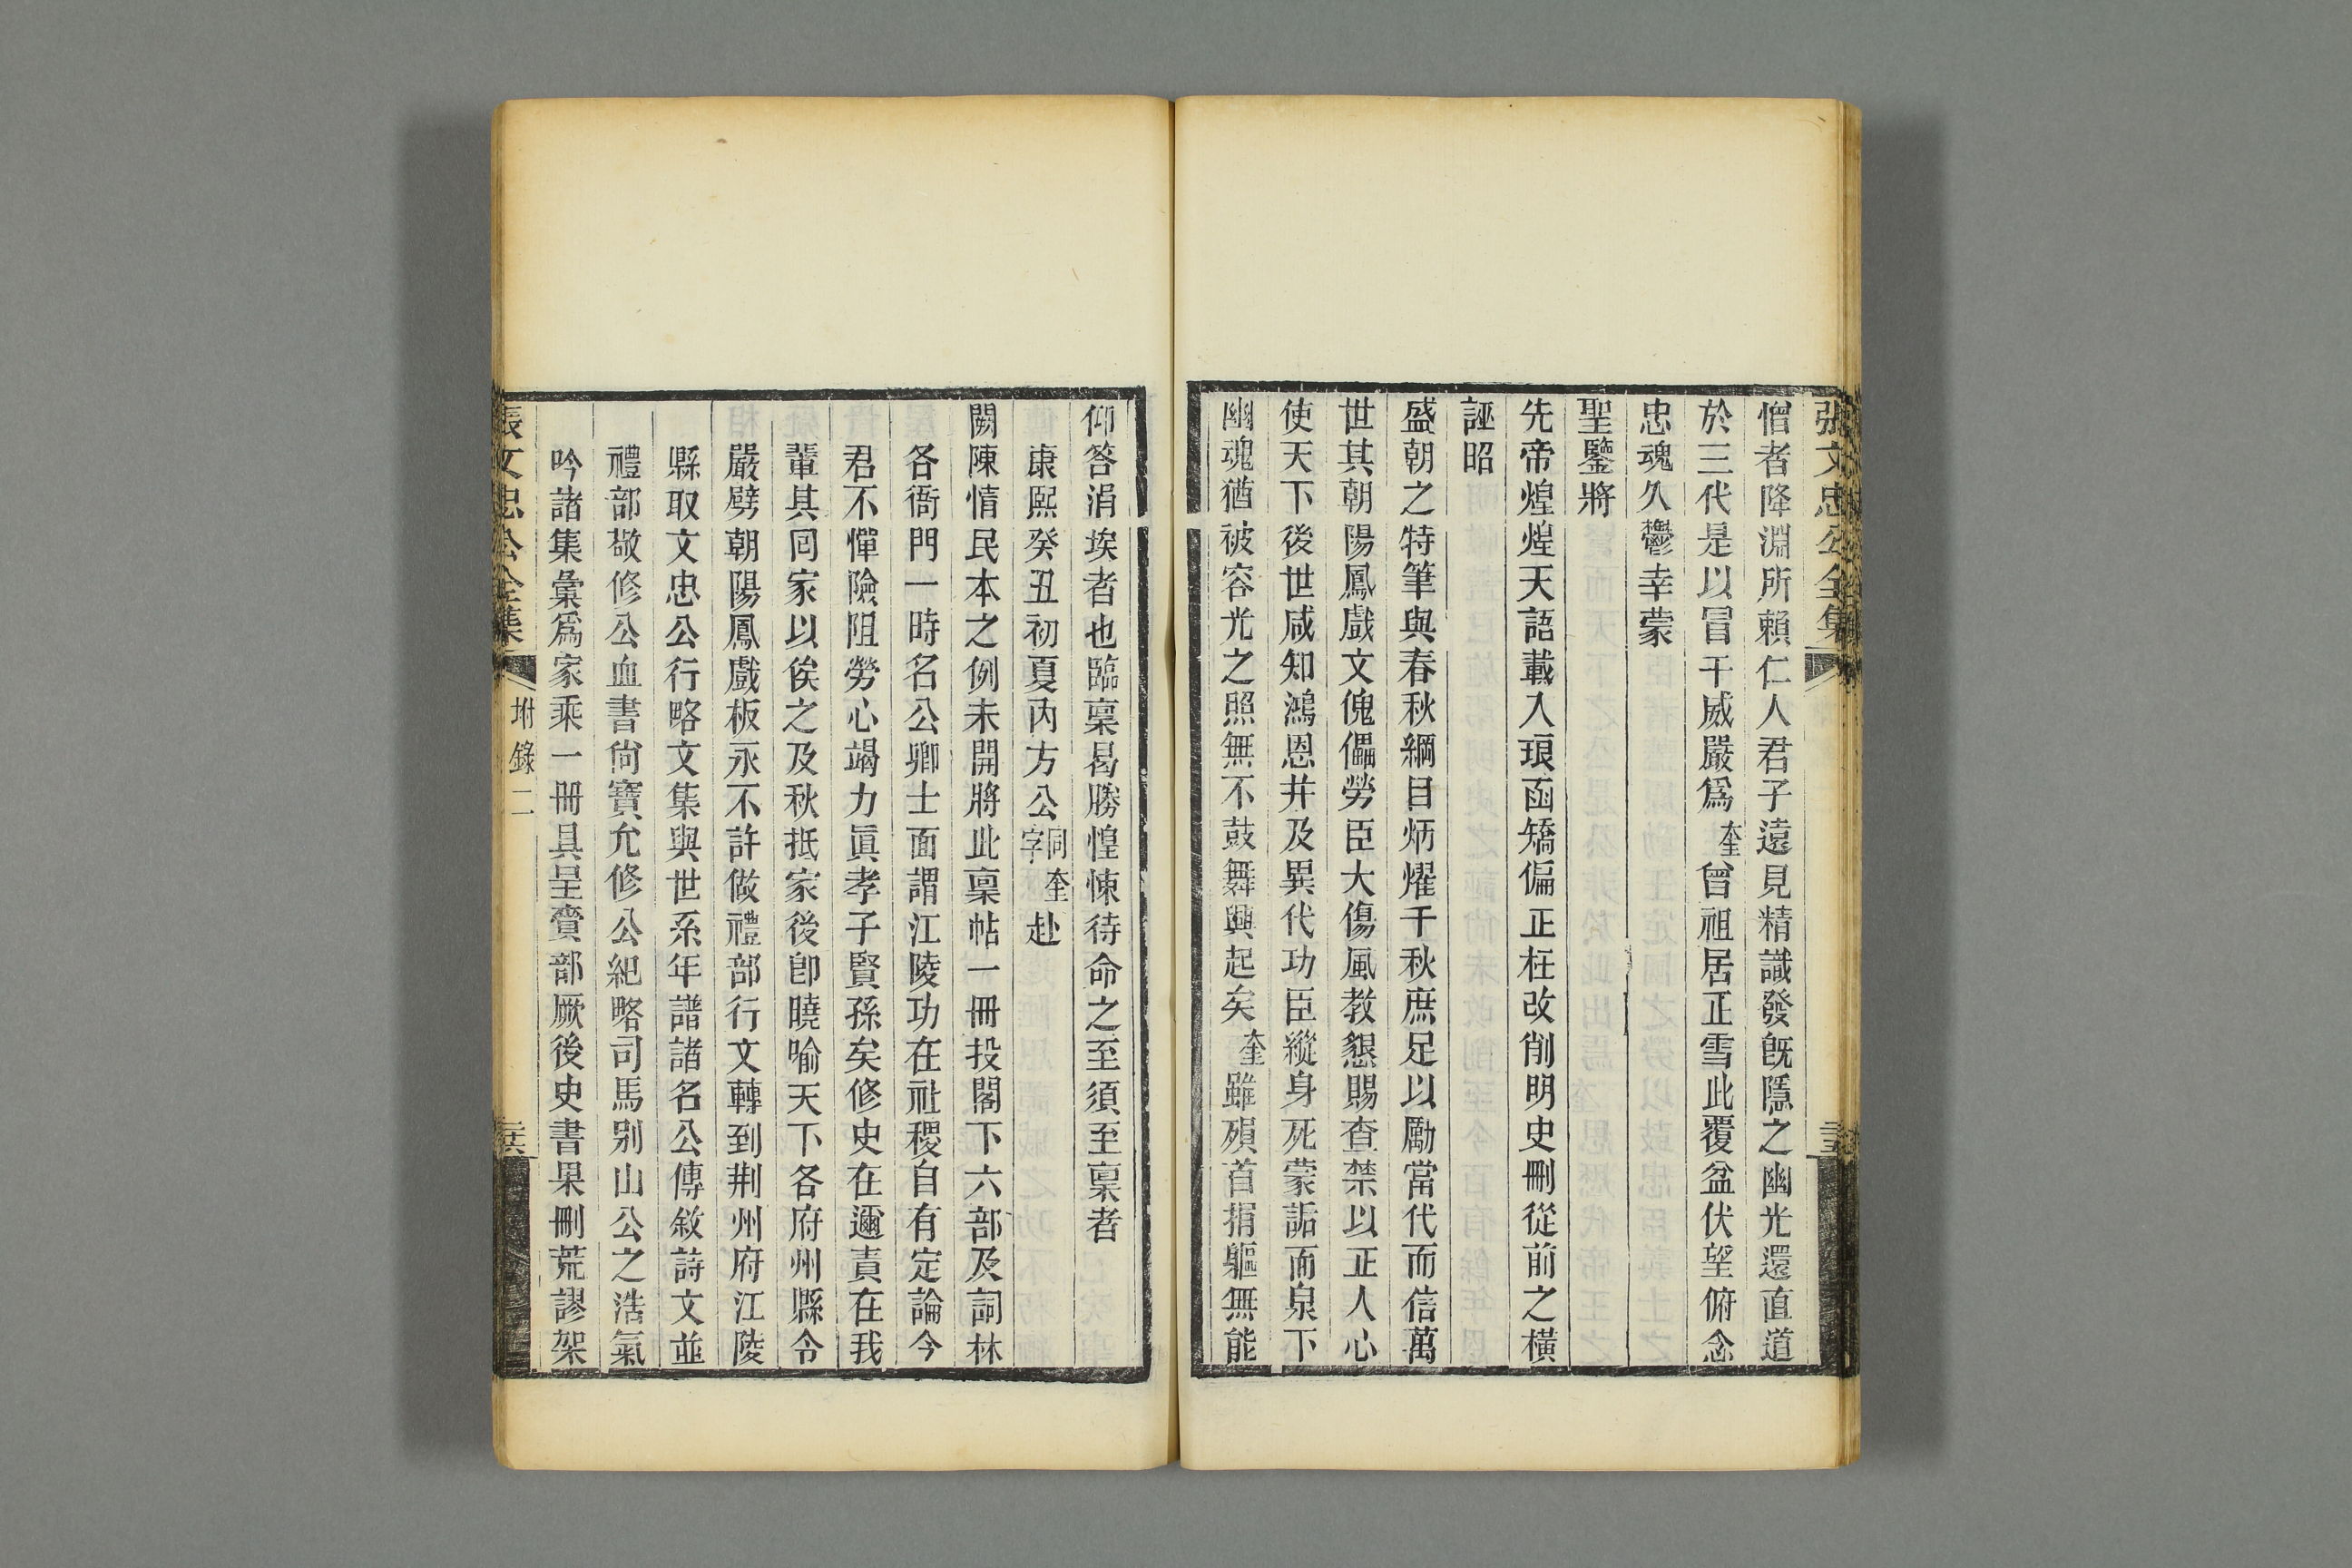 張文忠公全集
憎者降淵所賴仁人君子遠見精識發既隱之幽光還直道
於三代是以冒干威嚴爲奎曾祖居正雪此覆盆伏望俯念
忠魂久鬱幸蒙
聖鑒將
先帝煌煌天語載入琅函矯偏正枉改削明史刪從前之橫
誣昭
盛朝之特筆與春秋綱目炳燿千秋庶足以勵當代而信萬
世其朝陽鳳戲文傀儡勞臣大傷風教懇賜查禁以正人心
使天下後世咸知鴻恩并及異代功臣縱身死蒙詬而泉下
幽魂猶被容光之照無不鼓舞興起矣奎雖殞首捐軀無能
仰答涓埃者也臨稟曷勝惶悚待命之至須至稟者
康熙癸丑初夏丙方公同奎字赴
闕陳情民本之例未開將此稟帖一冊投閣下六部及詞林
各衙門一時名公卿士面謂江陵功在社稷自有定論今
君不憚險阻勞心竭力眞孝子賢孫矣修史在邇責在我
輩其回家以俟之及秋抵家後卽曉喻天下各府州縣令
嚴劈朝陽鳳戲板永不許做禮部行文轉到荆州府江陵
縣取文忠公行略文集與世系年譜諸名公傳敘詩文並
禮部敬修公血書尙寶允修公紀略司馬別山公之浩氣
吟諸集彙爲家乘一冊具呈賫部厥後史書果刪荒謬架
張文忠公全集
附錄二